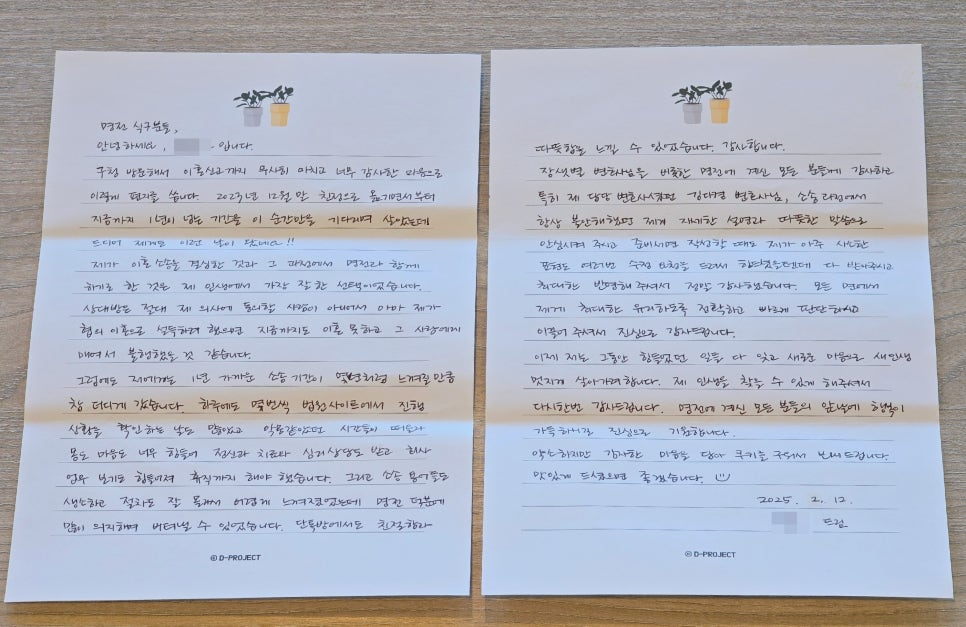 명전 식구분들,
안녕하세요, 입니다.
구청 방문해서 이혼신고까지 무사히 마치고 너무 감사한 마음으로
이렇게 편지를 씁니다. 2023년 12월 말 친정으로 옮기면서부터
지금까지 1년이 넘는 기간을 이 순간만을 기다리며 살았는데
드디어 제게도 이런 날이 왔네요!!
제가 이혼 소송을 결심한 것과 그 과정에서 명전과 함께
하기로 한 것은 제 인생에서 가장 잘 한 선택이었습니다.
상대방도 절대 제 의사에 동의할 사람이 아니어서 아마 제가
협의 이혼으로 설득하려 했으면 지금까지도 이혼 못하고 그 사람에게
매여서 불행했을 것 같습니다.
그럼에도 저에게는 1년 가까운 소송 기간이 몇년처럼 느껴질만큼
참 더디게 갔습니다. 하루에도 몇번씩 법원사이트에서 진행
상황을 확인하는 날도 많았고 악몽같았던 시간들이 떠올라
몸도 마음도 너무 힘들어 정신과 치료와 심리상담도 받고 회사
업무 보기도 힘들어져 휴직까지 해야 했습니다. 그리고 소송 용어들도
생소하고 절차도 잘 몰라서 어렵게 느껴졌었는데 명전 덕분에
많이 의지하며 버텨낼 수 있었습니다. 단톡방에서도 친절함과
© D-PROJECT
따뜻함을 느낄 수 있었습니다. 감사합니다.
장샛별 변호사님을 비롯한 명전에 계신 모든 분들께 감사하고
특히 제 담당 변호사셨던 김다경 변호사님, 소송 과정에서
항상 불안해했던 제게 자세한 설명과 따뜻한 말씀으로
안심시켜 주시고 준비서면 작성할 때도 제가 아주 사소한
표현도 여러번 수정 요청을 드려서 힘드셨을텐데 다 받아주시고
최대한 반영해 주셔서 정말 감사했습니다. 모든 면에서
제게 최대한 유리하도록 정확하고 빠르게 판단하시고
이끌어 주셔서 진심으로 감사드립니다.
이제 저는 그동안 힘들었던 일들 다 잊고 새로운 마음으로 새 인생
멋지게 살아가려합니다. 제 인생을 찾을 수 있게 해주셔서
다시한번 감사드립니다. 명전에 계신 모든 분들의 앞날에 행복이
가득하시길 진심으로 기원합니다.
약소하지만 감사한 마음을 담아 쿠키를 구워서 보내드립니다.
맛있게 드셨으면 좋겠습니다. ☺
2025. 2. 12.
드림
© D-PROJECT